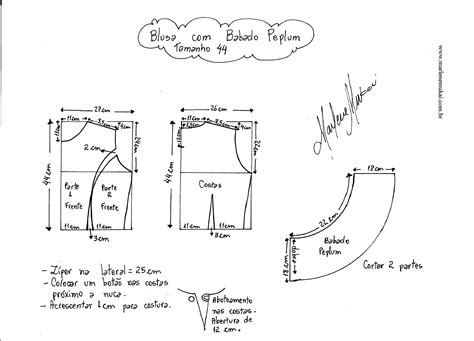 Blusa com Babado Peplum
Tamanho 44
www.marlenemukai.com.br
Marlene Mukai
27 cm
11cm
4cm
2 cm
22cm
44 cm
Parte
1
Frente
Parte
2
Frente
11cm
11cm
3cm
26 cm
11cm
4cm
22cm
44cm
Costas
11cm
11cm
3cm
18cm
22 cm
Babado
Peplum
dobra
18cm
Cortar 2 partes
- Zíper na lateral = 25cm
- Colocar um botão nas costas
próximo a nuca.
- Acrescentar 1cm para costura.
Abotoamento
nas costas.
Abertura de
12 cm.